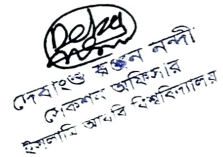 দেবাংশু রঞ্জন নন্দী
সেকশন অফিসার
ইসলামি আরবি বিশ্ববিদ্যালয়